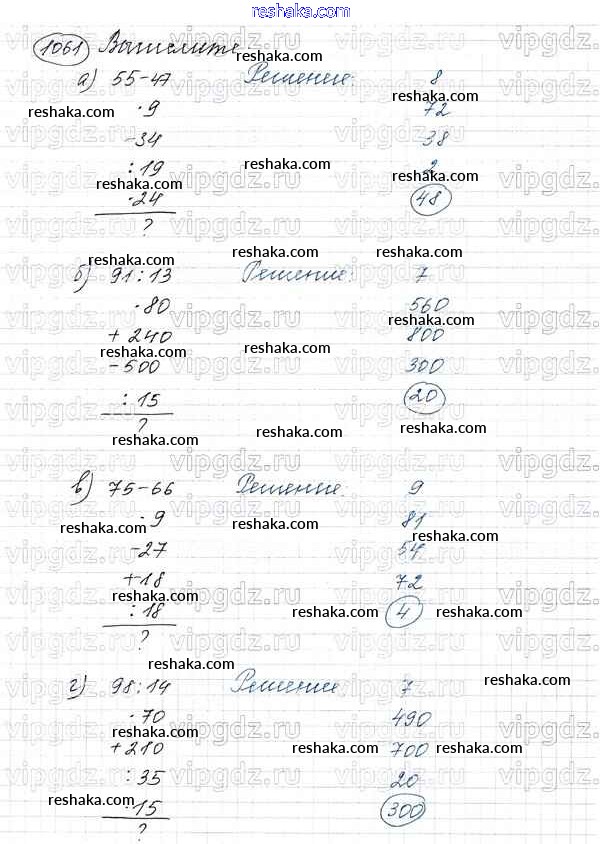 reshaka.com
1061 Вычислите
а) 55-47 Решение: 8
·9 72
-34 38
:19 2
·24 48
?
б) 91:13 Решение: 7
·80 560
+240 800
-500 300
:15 20
?
в) 75-66 Решение: 9
·9 81
-27 54
+18 72
:18 4
?
г) 98:14 Решение: 7
·70 490
+210 700
:35 20
·15 300
?